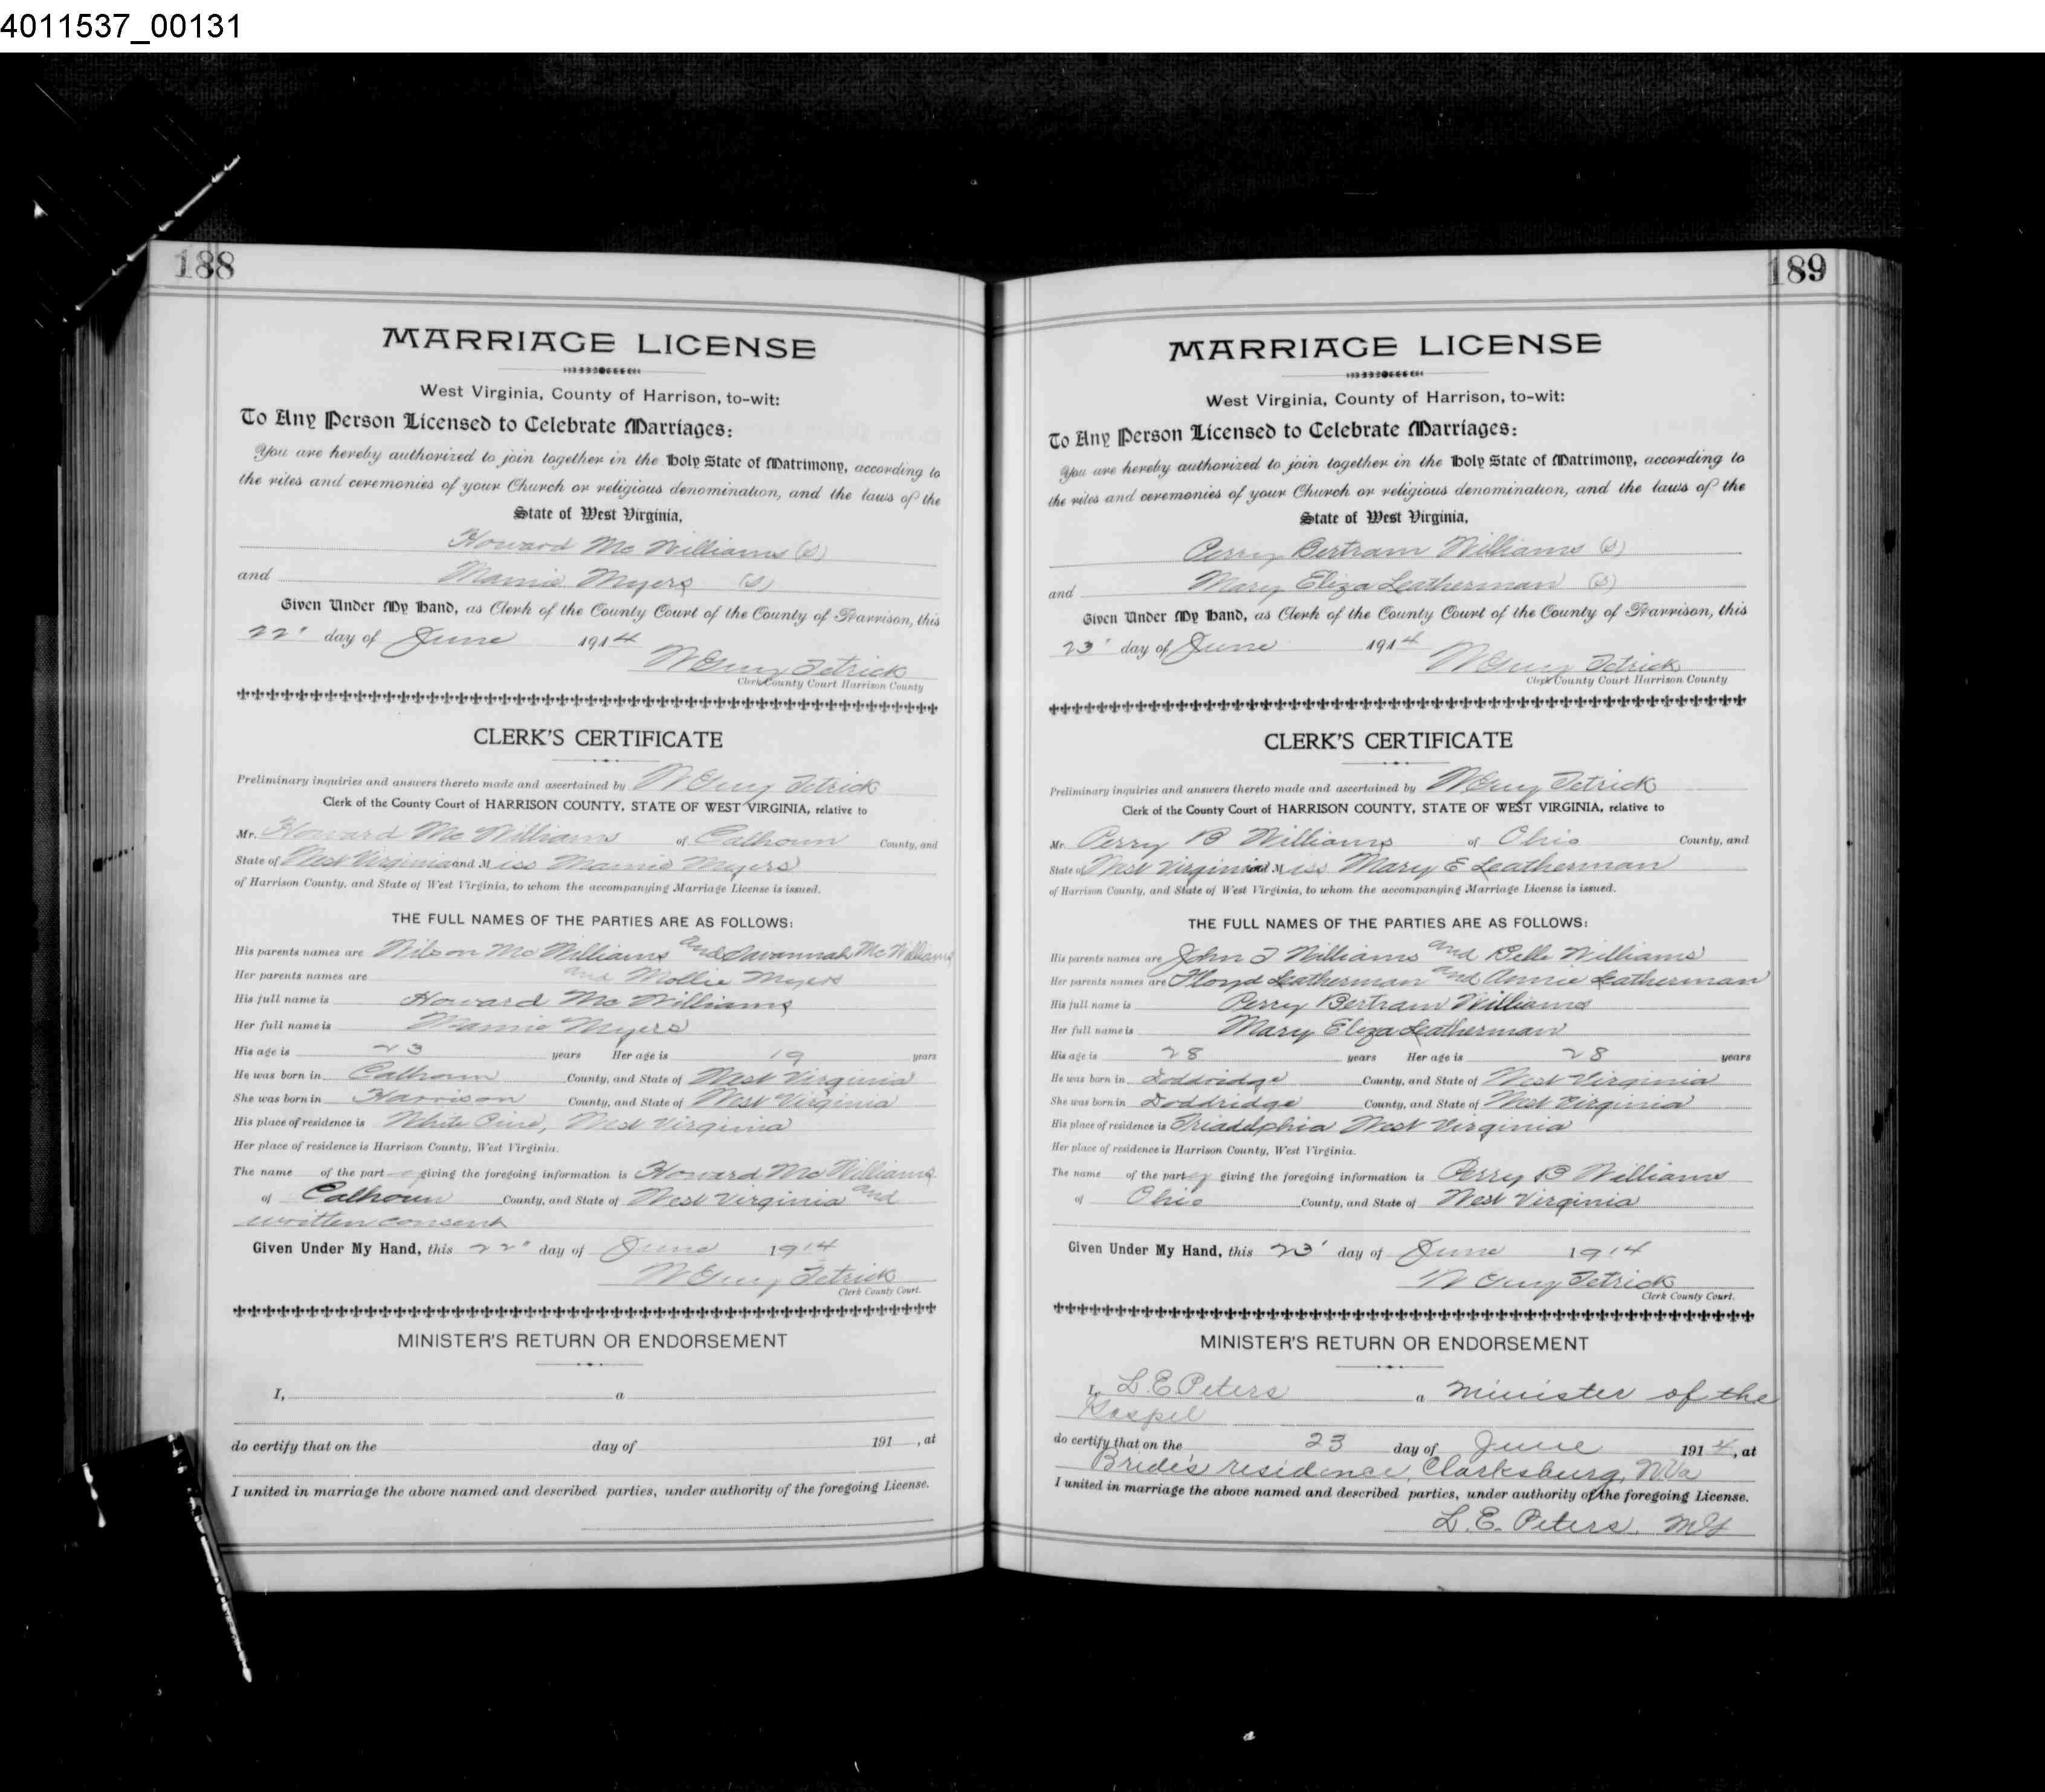 4011537_00131
188
MARRIAGE LICENSE
West Virginia, County of Harrison, to-wit:
To Any Person Licensed to Celebrate Marriages:
You are hereby authorized to join together in the Holy State of Matrimony, according to
the rites and ceremonies of your Church or religious denomination, and the laws of the
State of West Virginia,
Howard Mc Williams (S)
and Mamie Myers (S)
Given Under My Hand, as Clerk of the County Court of the County of Harrison, this
22" day of June 1914
Tetrick
Clerk County Court Harrison County
CLERK'S CERTIFICATE
Preliminary inquiries and answers thereto made and ascertained by Tetrick
Clerk of the County Court of HARRISON COUNTY, STATE OF WEST VIRGINIA, relative to
Mr. Howard Mc Williams of Calhoun County, and
State of West Virginia and Miss Mamie Myers
of Harrison County, and State of West Virginia, to whom the accompanying Marriage License is issued.
THE FULL NAMES OF THE PARTIES ARE AS FOLLOWS:
His parents names are Wilson Mc Williams and Savannah Mc Williams
Her parents names are and Mollie Myers
His full name is Howard Mc Williams
Her full name is Mamie Myers
His age is 23 years Her age is 19 years
He was born in Calhoun County, and State of West Virginia
She was born in Harrison County, and State of West Virginia
His place of residence is White Pine, West Virginia
Her place of residence is Harrison County, West Virginia.
The name of the part giving the foregoing information is Howard Mc Williams
of Calhoun County, and State of West Virginia and
written consent
Given Under My Hand, this 22" day of June 1914
Tetrick
Clerk County Court.
MINISTER'S RETURN OR ENDORSEMENT
I, a
do certify that on the day of 191 , at
I united in marriage the above named and described parties, under authority of the foregoing License.
189
MARRIAGE LICENSE
West Virginia, County of Harrison, to-wit:
To Any Person Licensed to Celebrate Marriages:
You are hereby authorized to join together in the Holy State of Matrimony, according to
the rites and ceremonies of your Church or religious denomination, and the laws of the
State of West Virginia,
Perry Bertram Williams (S)
and Mary Eliza Leatherman (S)
Given Under My Hand, as Clerk of the County Court of the County of Harrison, this
23' day of June 1914
Tetrick
Clerk County Court Harrison County
CLERK'S CERTIFICATE
Preliminary inquiries and answers thereto made and ascertained by Tetrick
Clerk of the County Court of HARRISON COUNTY, STATE OF WEST VIRGINIA, relative to
Mr. Perry B Williams of Ohio County, and
State of West Virginia and Miss Mary E Leatherman
of Harrison County, and State of West Virginia, to whom the accompanying Marriage License is issued.
THE FULL NAMES OF THE PARTIES ARE AS FOLLOWS:
His parents names are John T Williams and Belle Williams
Her parents names are Floyd Leatherman and Annie Leatherman
His full name is Perry Bertram Williams
Her full name is Mary Eliza Leatherman
His age is 28 years Her age is 28 years
He was born in Doddridge County, and State of West Virginia
She was born in Doddridge County, and State of West Virginia
His place of residence is Triadelphia West Virginia
Her place of residence is Harrison County, West Virginia.
The name of the party giving the foregoing information is Perry B Williams
of Ohio County, and State of West Virginia
Given Under My Hand, this 23' day of June 1914
Tetrick
Clerk County Court.
MINISTER'S RETURN OR ENDORSEMENT
I, L. E. Peters a Minister of the
Gospel
do certify that on the 23 day of June 1914, at
Bride's residence, Clarksburg, W.Va
I united in marriage the above named and described parties, under authority of the foregoing License.
L. E. Peters. MG